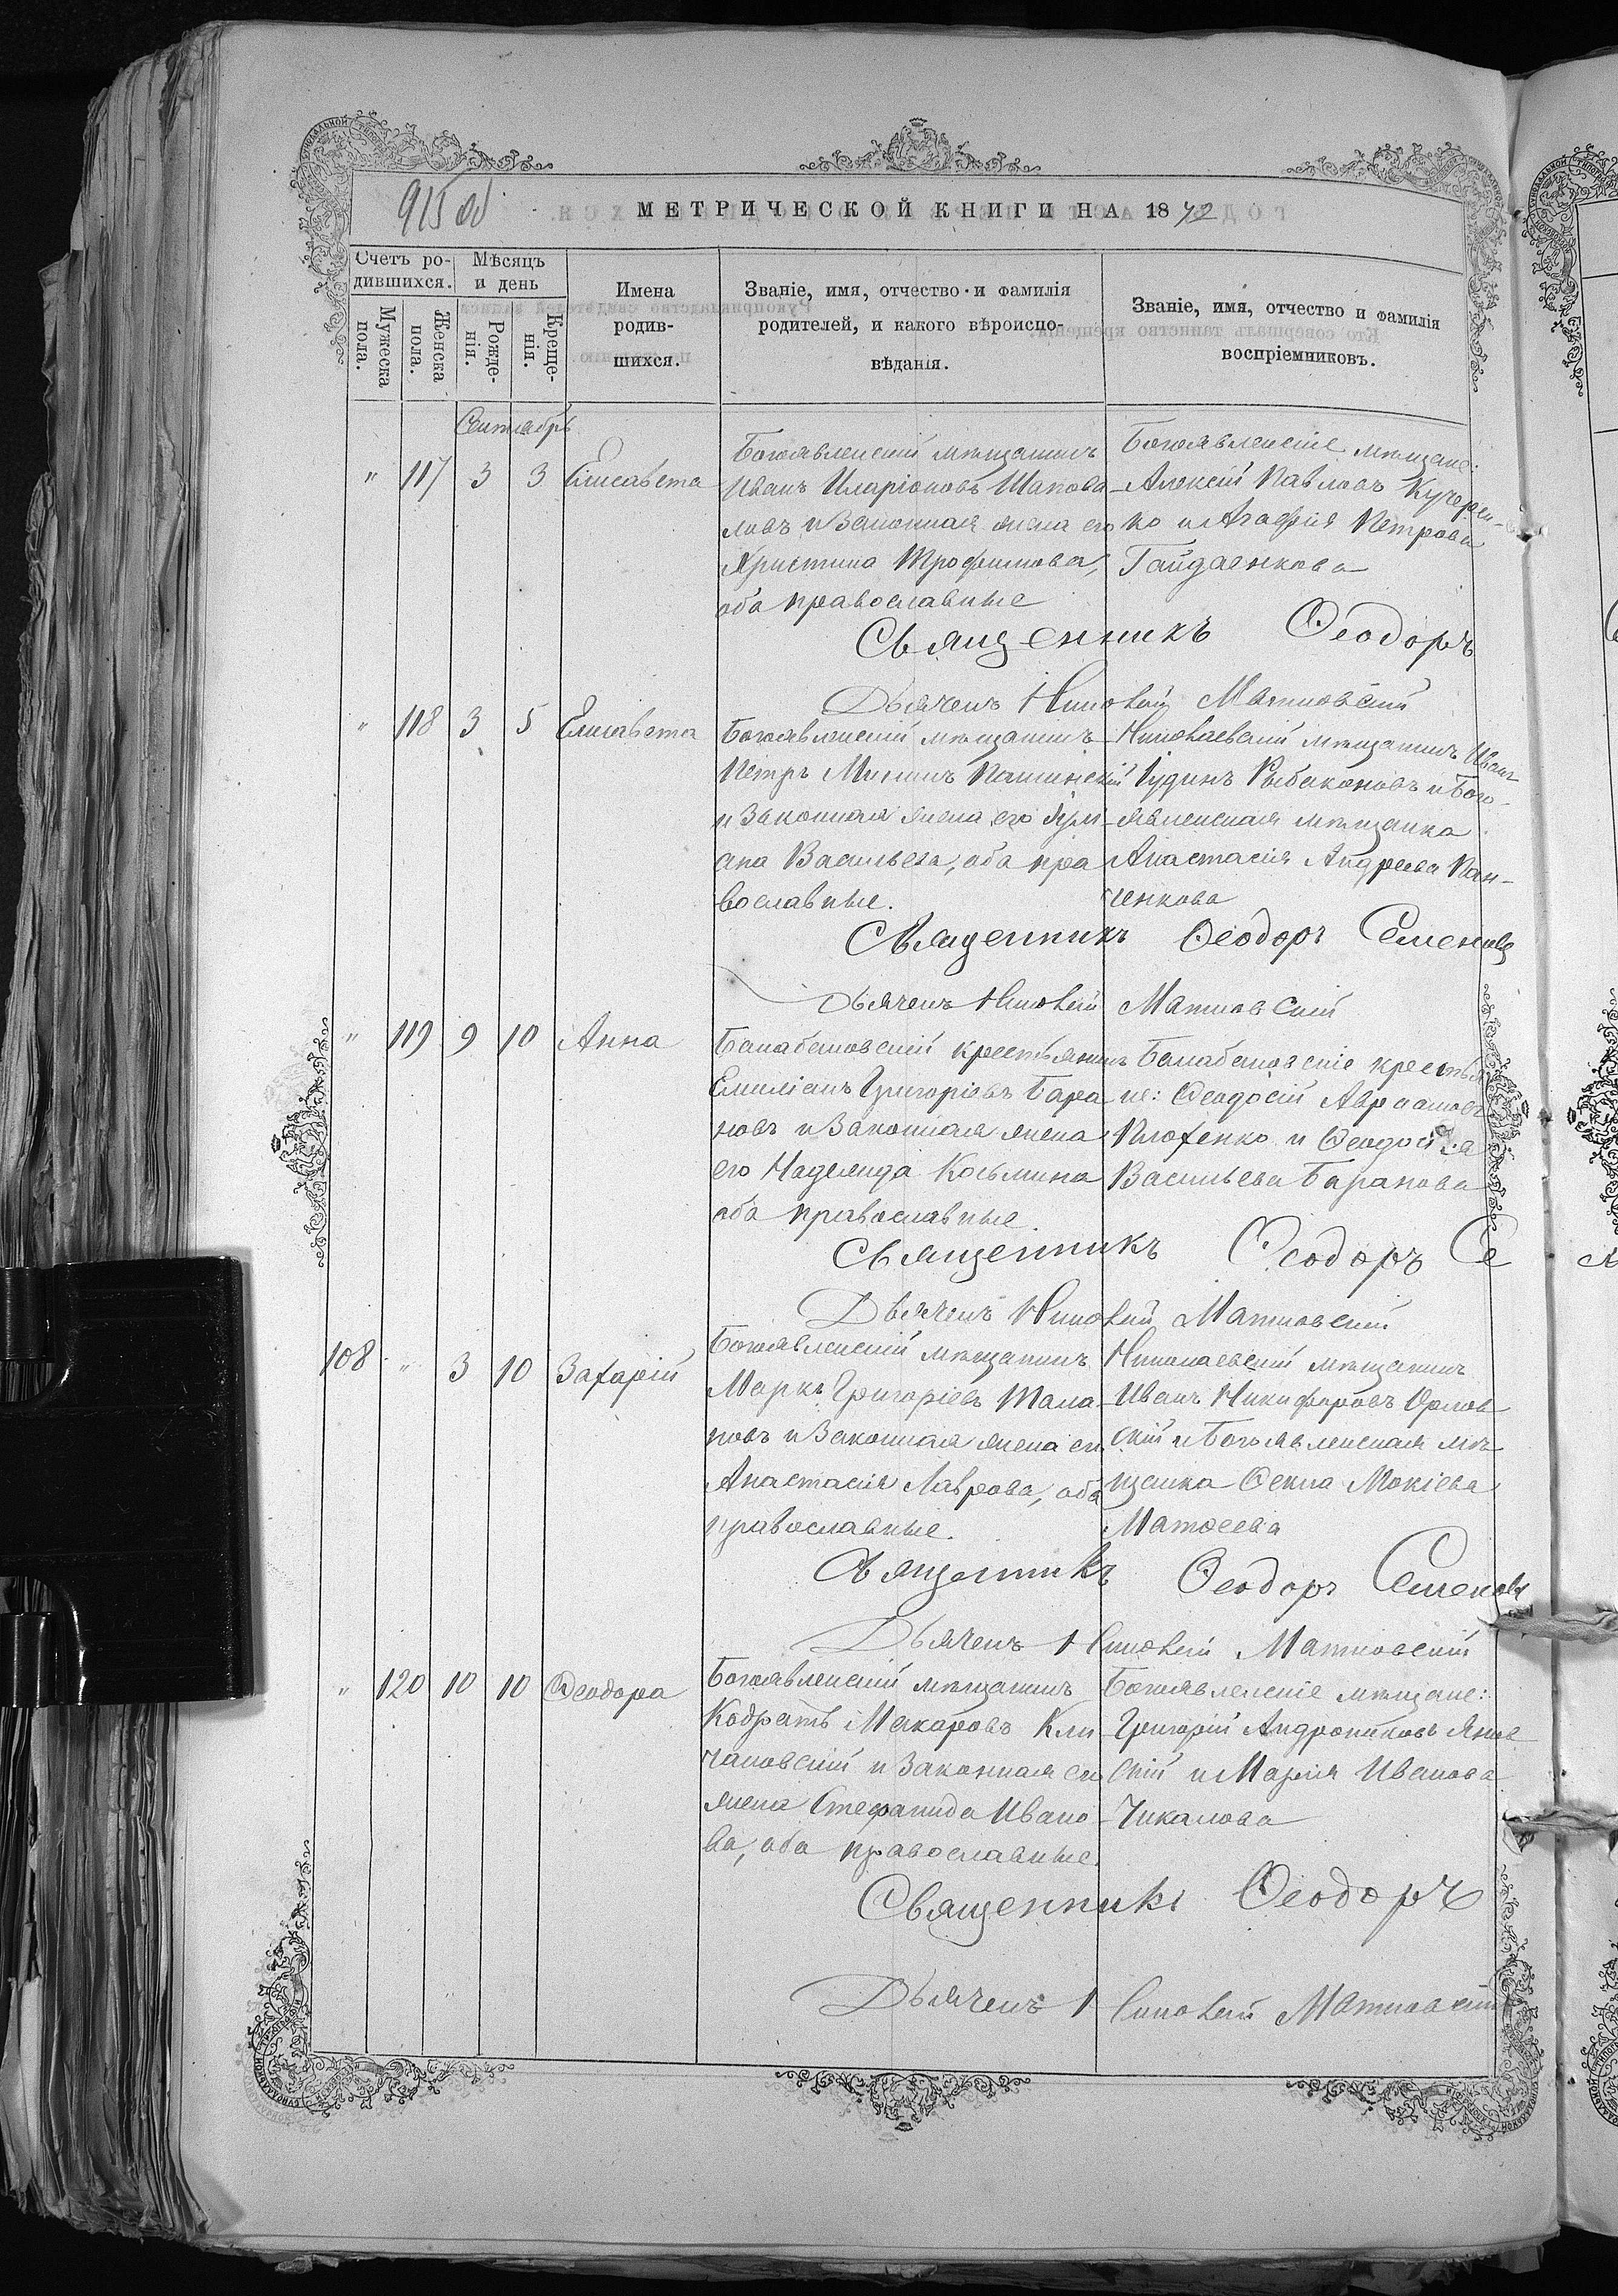 915 об
МЕТРИЧЕСКОЙ КНИГИ НА 1872
Счетъ ро-
дившихся.
Мѣсяцъ
и день
Мужеска
пола.
Женска
пола.
Рожде-
нія.
Креще-
нія.
Имена
родив-
шихся.
Званіе, имя, отчество и фамилія
родителей, и какого вѣроиспо-
вѣданія.
Званіе, имя, отчество и фамилія
воспріемниковъ.
Сентябрь
" 117 3 3 Елисавета
Богоявленскій мѣщанинъ
Иванъ Иларіоновъ Шапова-
ловъ и законная жена его
Христина Трофимова,
оба православные
Богоявленскіе мѣщане:
Алексій Павловъ Кучерен-
ко и Агафія Петрова
Гайдаенкова
Священникъ Ѳеодоръ
Дьячекъ Матковскій
" 118 3 5 Елисавета
Богоявленскій мѣщанинъ
Петръ Мининъ Пашинскій
и законная жена его Ири-
ана Васильева, оба пра
вославные.
Николаевскій мѣщанинъ Иванъ
Іудинъ Рыбаконовъ и Бого-
явленская мѣщанка
Анастасія Андреева Пан-
ченкова
Священникъ Ѳеодоръ Семеновъ
Дьячекъ Матковскій
" 119 9 10 Анна
Балабановскій крестьянинъ
Емиліанъ Григоріевъ Бара
новъ и законная жена
его Надежда Косьмина
оба православные.
Балабановскіе крестья
не: Ѳеодосій Авраамовъ
Плохенко и Ѳеодосія
Васильева Баранова
Священникъ Ѳеодоръ Се
Дьячекъ Матковскій
108 " 3 10 Захарій
Богоявленскій мѣщанинъ
Маркъ Григоріевъ Тала-
новъ и законная жена его
Анастасія Лаврова, оба
православные.
Николаевскій мѣщанинъ
Иванъ Никифоровъ Орлов
скій и Богоявленская мѣ-
щанка Ѳекла Мокіева
Матѳеева
Священникъ Ѳеодоръ Семеновъ
Дьячекъ Матковскій
" 120 10 10 Ѳеодора
Богоявленскій мѣщанинъ
Кодратъ Макаровъ Кли-
чановскій и законная его
жена Стефанида Ивано-
ва, оба православные.
Богоявленскіе мѣщане:
Григорій Андрониковъ Янов
скій и Марія Иванова
Чикалова
Священникъ Ѳеодоръ
Дьячекъ Матковскій